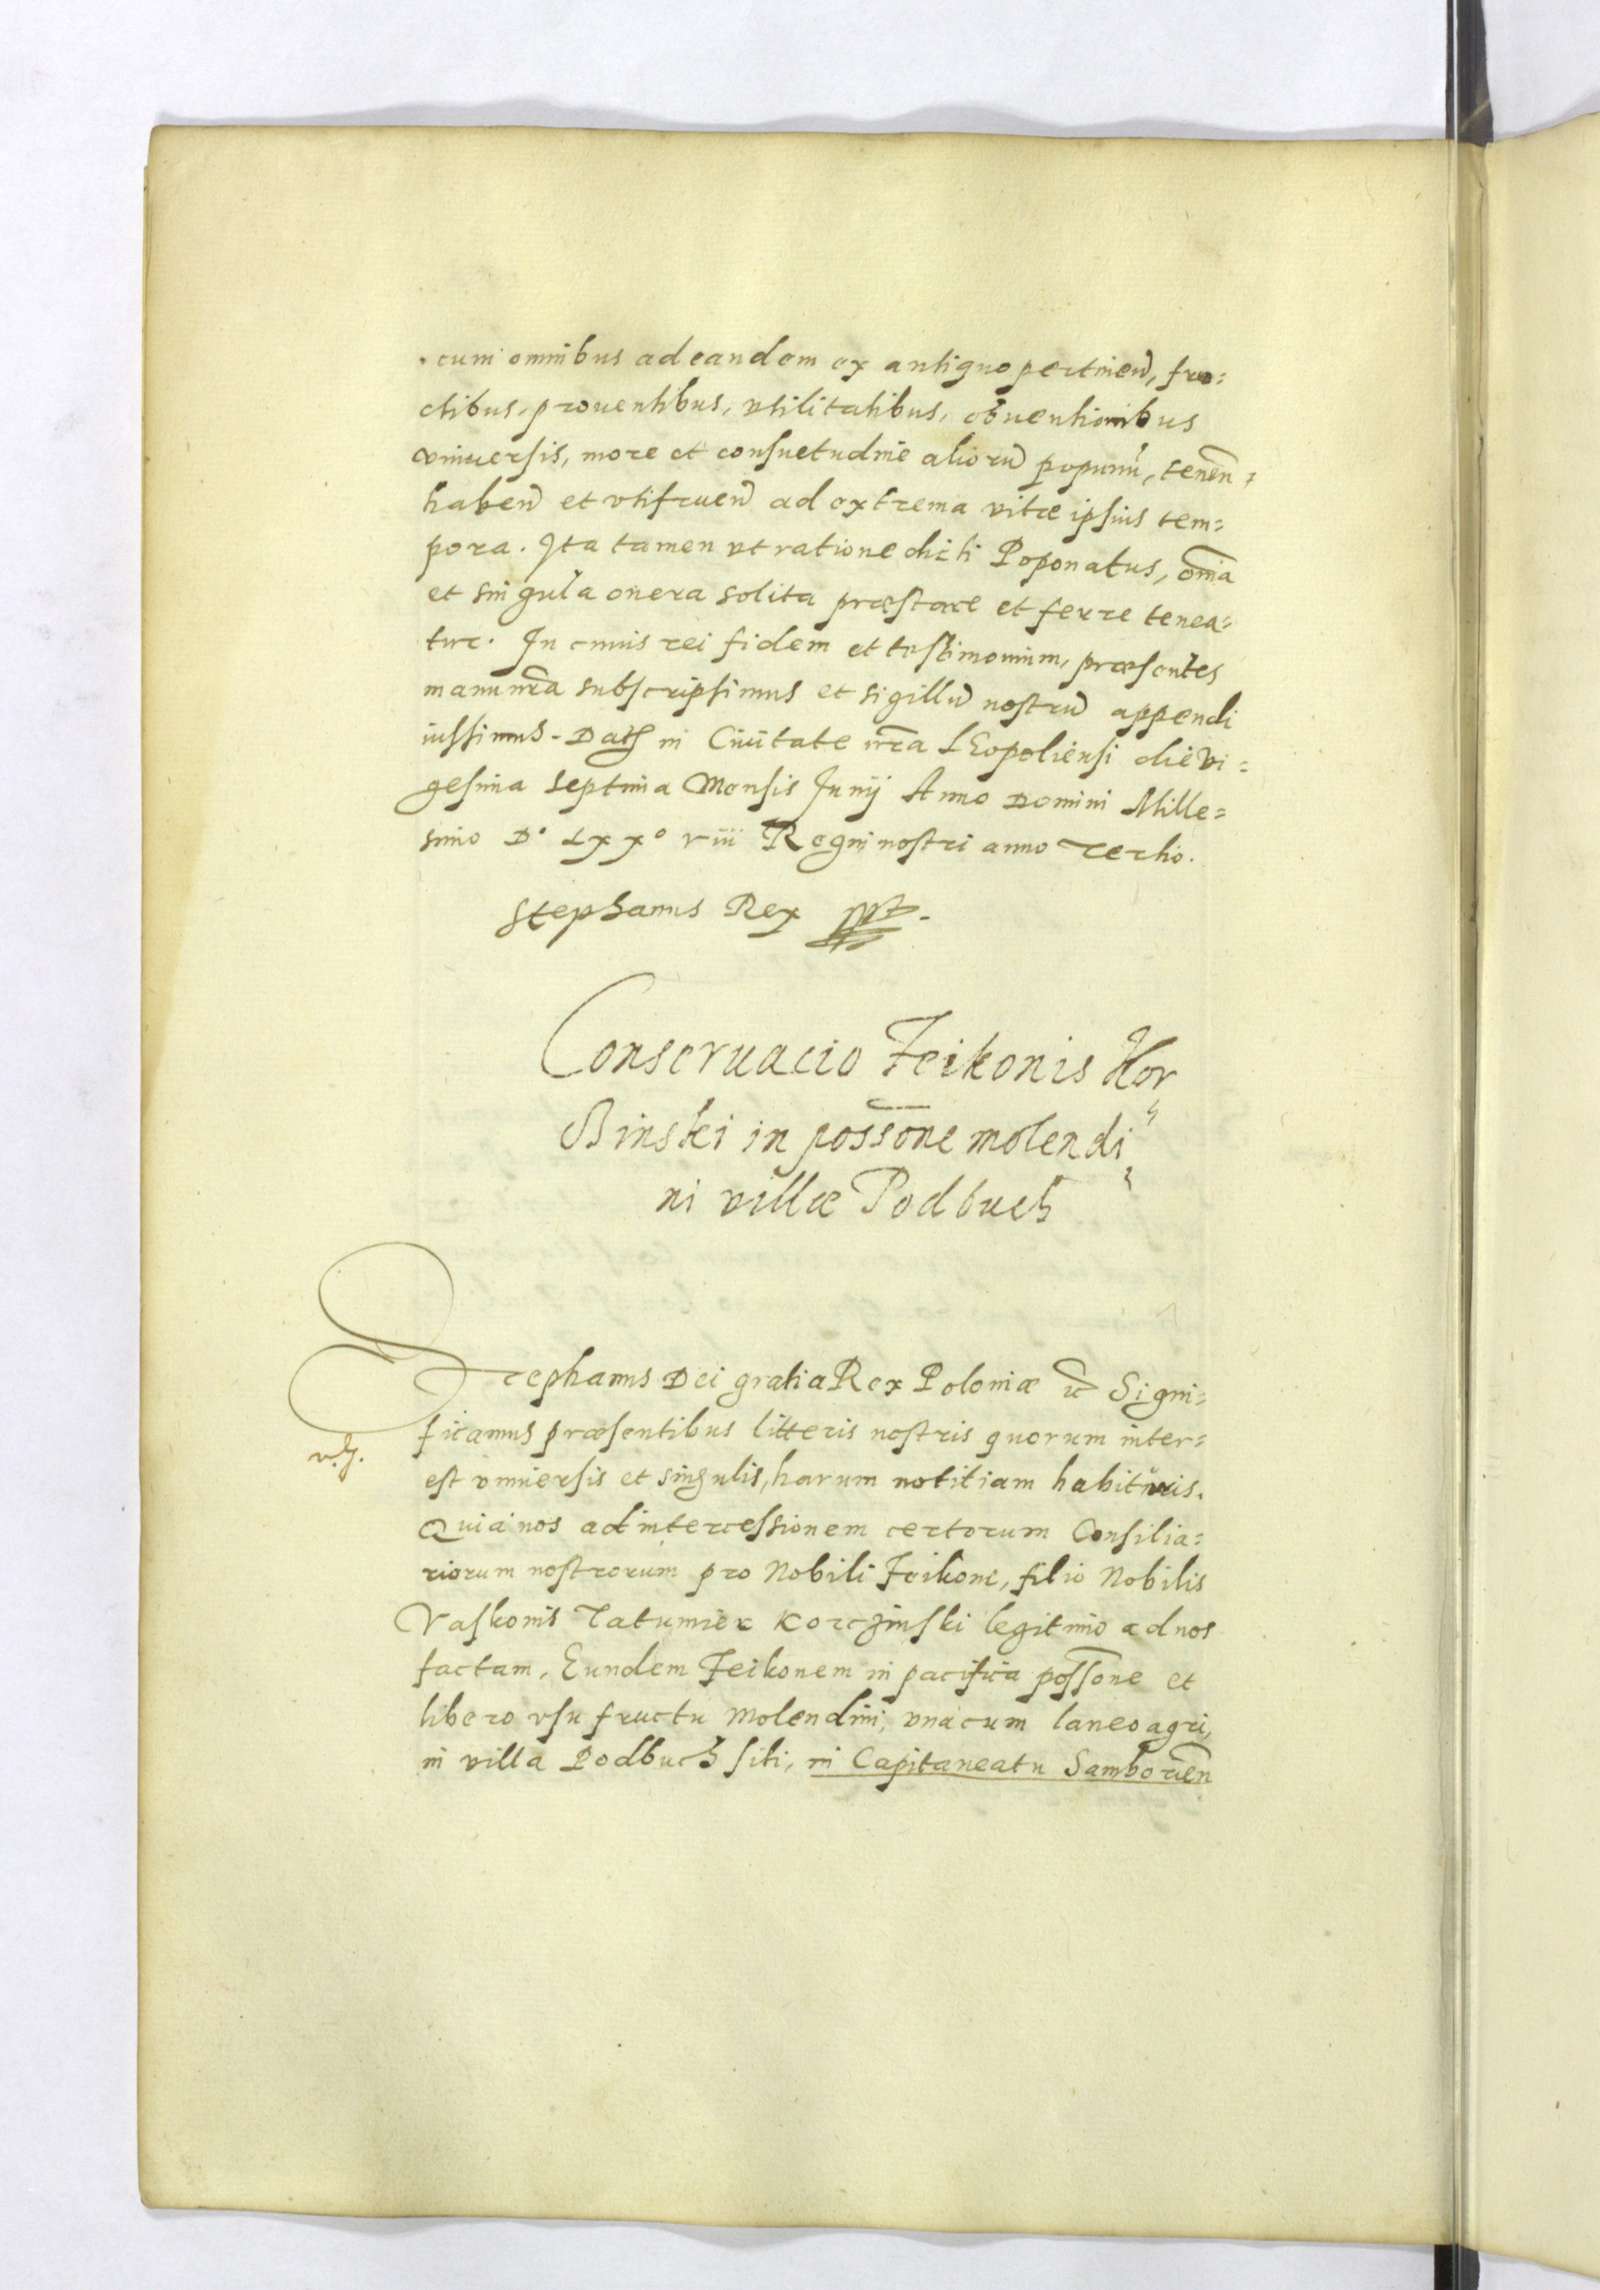 cum omnibus ad eandem ex antiquo pertinen̄, fru=
ctibus, prouentibus, vtilitatibus, obuentionibus
vniuersis, more et consuetudine aliorū poponū, tenen̄,
haben̄ et vtifruen̄ ad extrema vitæ ipsius tem=
pora. Ita tamen vt ratione dicti Poponatus, om̄ia
et singula onera solita præstare et ferre tenea=
tur. In cuius rei fidem et testimonium, præsentes
manu nr̄a subscripsimus et sigillū nostrū appendi
iussimus. Dat in Ciuitate nr̄a LEopoliensi die vi=
gesima septima Mensis Junij Anno Domini Mille=
simo D° Lxx° viii Regni nostri anno Tertio.
Stephanus Rex
Conseruacio Feikonis Kor
Binski in poss̄one molendi
ni villæ Podbuch
Stephanus Dei gratia Rex Poloniæ etc̄ Signi=
ficamus præsentibus litteris nostris quorum inter=
est vniuersis et singulis, harum notitiam habituris.
Quia nos ad intercessionem certorum Consilia=
riorum nostrorum pro Nobili Feikone, filio Nobilis
Vaskonis Tatumier Korczinski legitimo ad nos
factam, Eundem Feikonem in pacifica poss̄one et
libero vsu fructu Molendini, vna cum laneo agri,
in villa Podbuch siti, in Capitaneatu Samborien̄